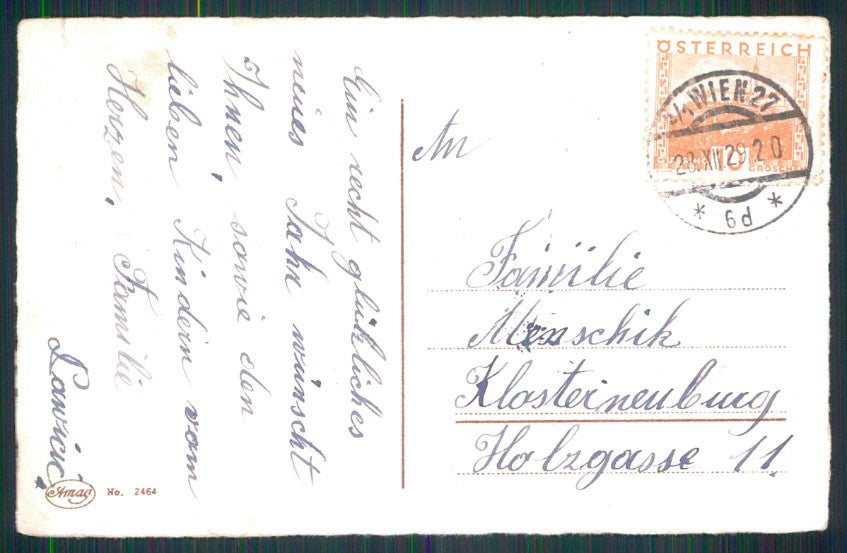 Ein recht glückliches
neues Jahr wünscht
Ihnen, sowie den
lieben Kindern vom
Herzen, Familie
Amag No. 2464
ÖSTERREICH
WIEN 27
28.XII.29 20
10
GROSCHEN
* 6d *
An
Familie
Menschik
Klosterneuburg
Holzgasse 11